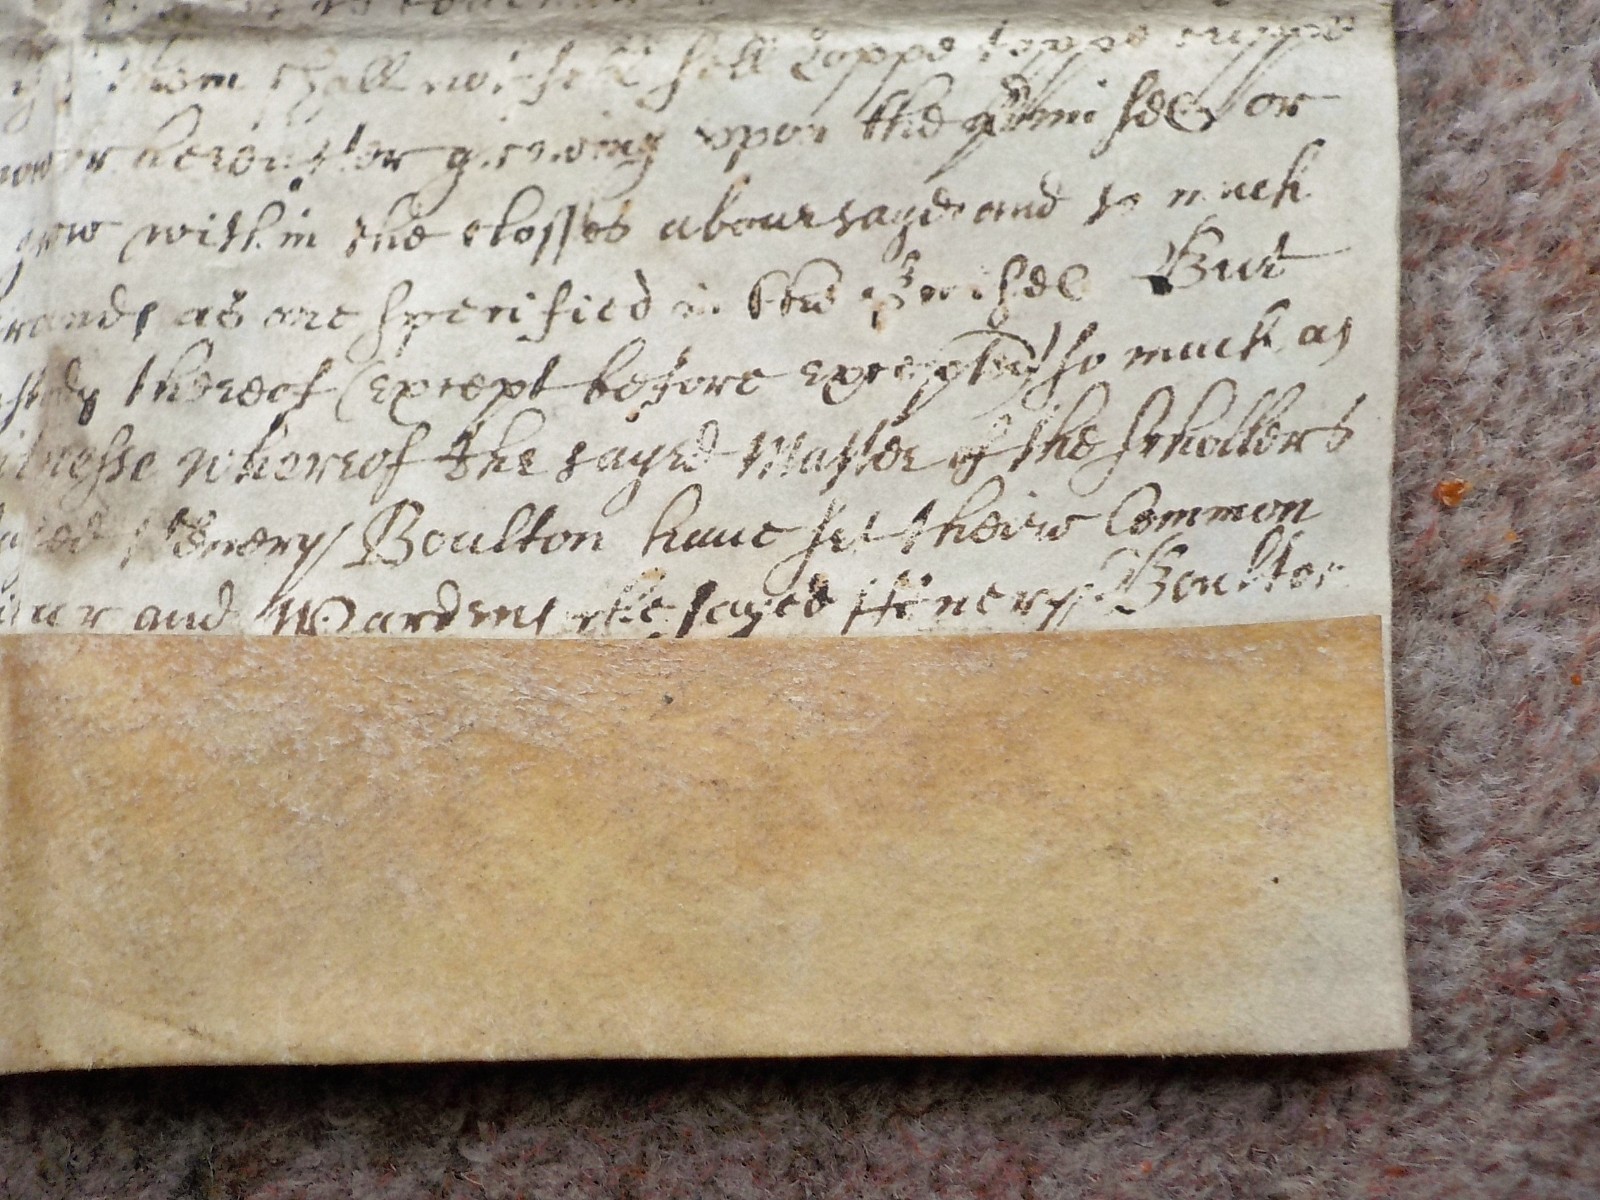 them shall not fell sell loppe toppe cropp
now or hereafter growing vpon the p̄misses or
grow within the closses abouesayd and so much
as are specified in the p̄misses But
thereof (except before excepted) so much as
witnesse whereof the sayed Master of the Schollers
sayed Henery Boulton haue set theire Common
and Wardens the sayed Henery Boulton